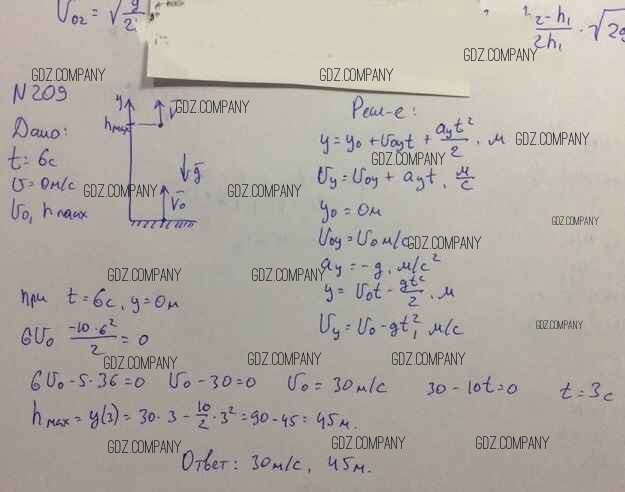 v₀₂ = √g/2
2-h₁/2h₁ · √2g
GDZ.COMPANY GDZ.COMPANY GDZ.COMPANY
N209
Дано:
t = 6с
v = 0м/с
v₀, hmax
y
hmax
v̄
ḡ
v̄₀
GDZ.COMPANY GDZ.COMPANY
GDZ.COMPANY GDZ.COMPANY
Реш-е:
y = y₀ + v₀yt + ayt²/2, м
GDZ.COMPANY
vy = v₀y + ayt, м/с
y₀ = 0м
GDZ.COMPANY
v₀y = v₀ м/с GDZ.COMPANY
ay = -g, м/с²
y = v₀t - gt²/2, м
vy = v₀ - gt, м/с GDZ.COMPANY
GDZ.COMPANY GDZ.COMPANY
при t = 6с, y = 0м
6v₀ -10·6²/2 = 0
GDZ.COMPANY GDZ.COMPANY GDZ.COMPANY
6v₀ - 5·36 = 0 v₀ - 30 = 0 v₀ = 30 м/с 30 - 10t = 0 t = 3с
hmax = y(3) = 30·3 - 10/2·3² = 90 - 45 = 45м.
GDZ.COMPANY GDZ.COMPANY GDZ.COMPANY
Ответ: 30м/с, 45м.